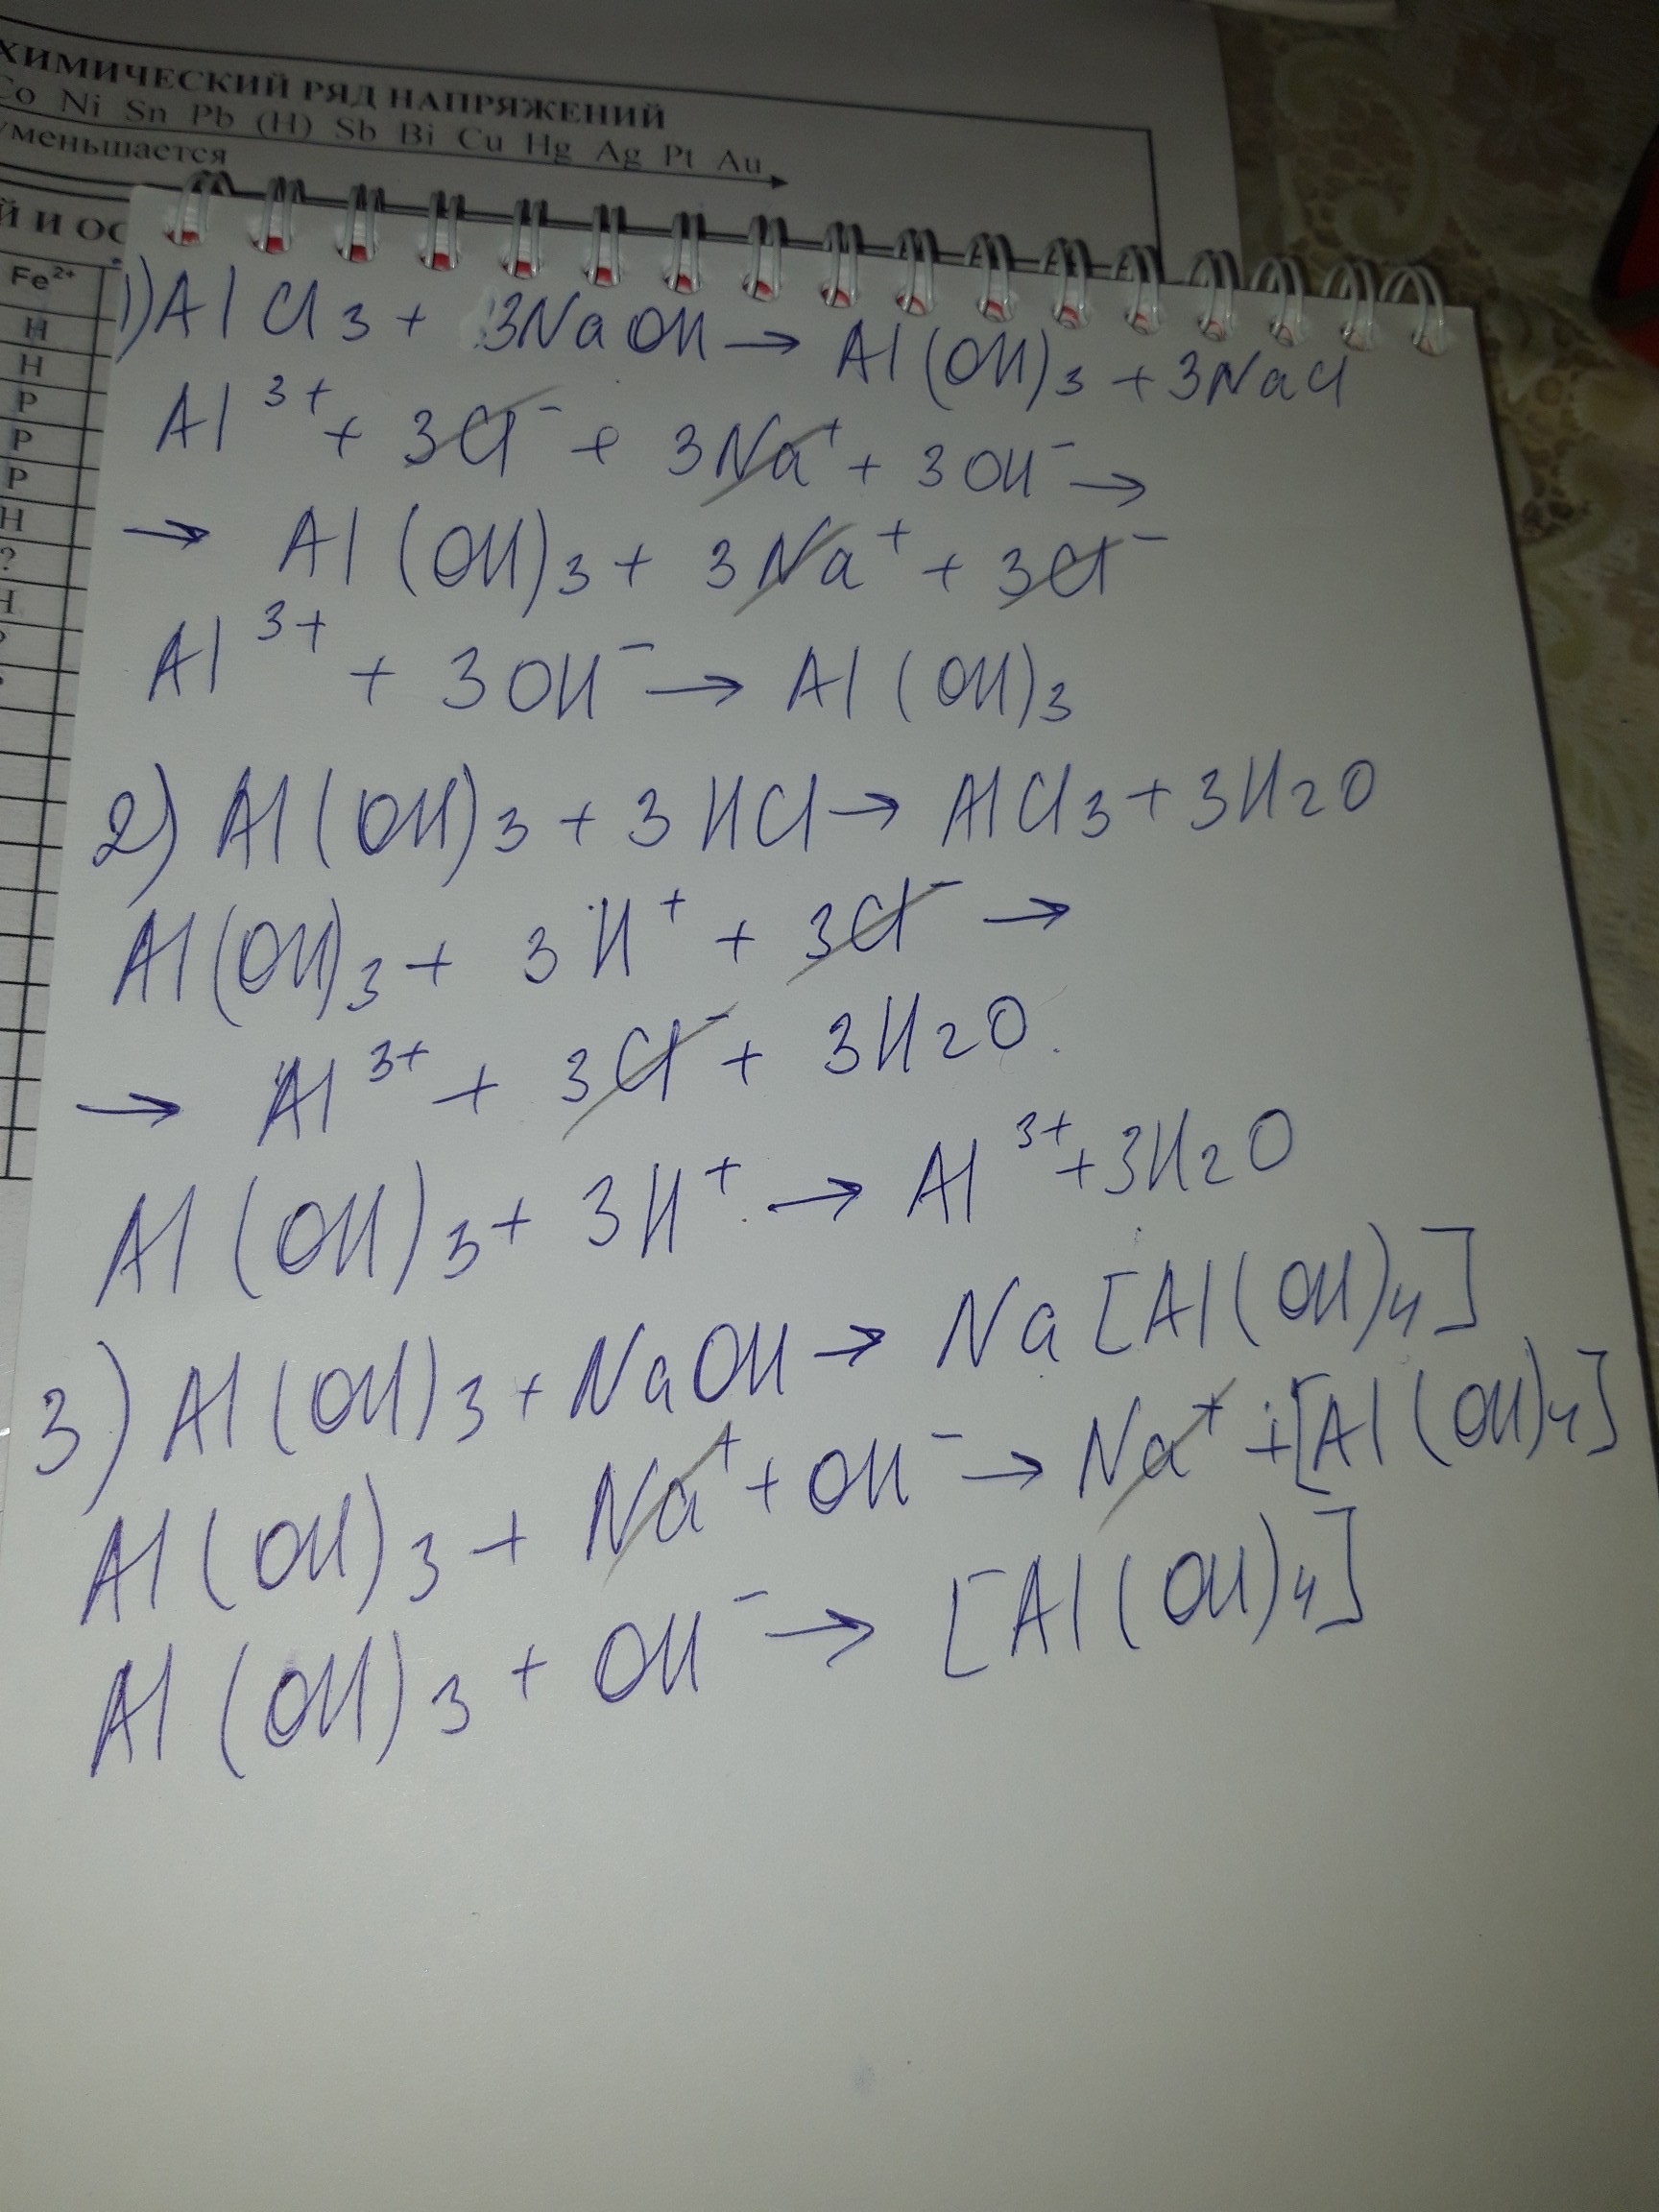 ХИМИЧЕСКИЙ РЯД НАПРЯЖЕНИЙ
Co Ni Sn Pb (H) Sb Bi Cu Hg Ag Pt Au
уменьшается
Й И ОС
Fe²⁺
Н
Н
Р
Р
Р
Н
?
Н
1) AlCl3 + 3NaOH → Al(OH)3 + 3NaCl
Al³⁺ + 3Cl⁻ + 3Na⁺ + 3OH⁻ →
→ Al(OH)3 + 3Na⁺ + 3Cl⁻
Al³⁺ + 3OH⁻ → Al(OH)3
2) Al(OH)3 + 3HCl → AlCl3 + 3H2O
Al(OH)3 + 3H⁺ + 3Cl⁻ →
→ Al³⁺ + 3Cl⁻ + 3H2O
Al(OH)3 + 3H⁺ → Al³⁺ + 3H2O
3) Al(OH)3 + NaOH → Na[Al(OH)4]
Al(OH)3 + Na⁺ + OH⁻ → Na⁺ + [Al(OH)4]
Al(OH)3 + OH⁻ → [Al(OH)4]